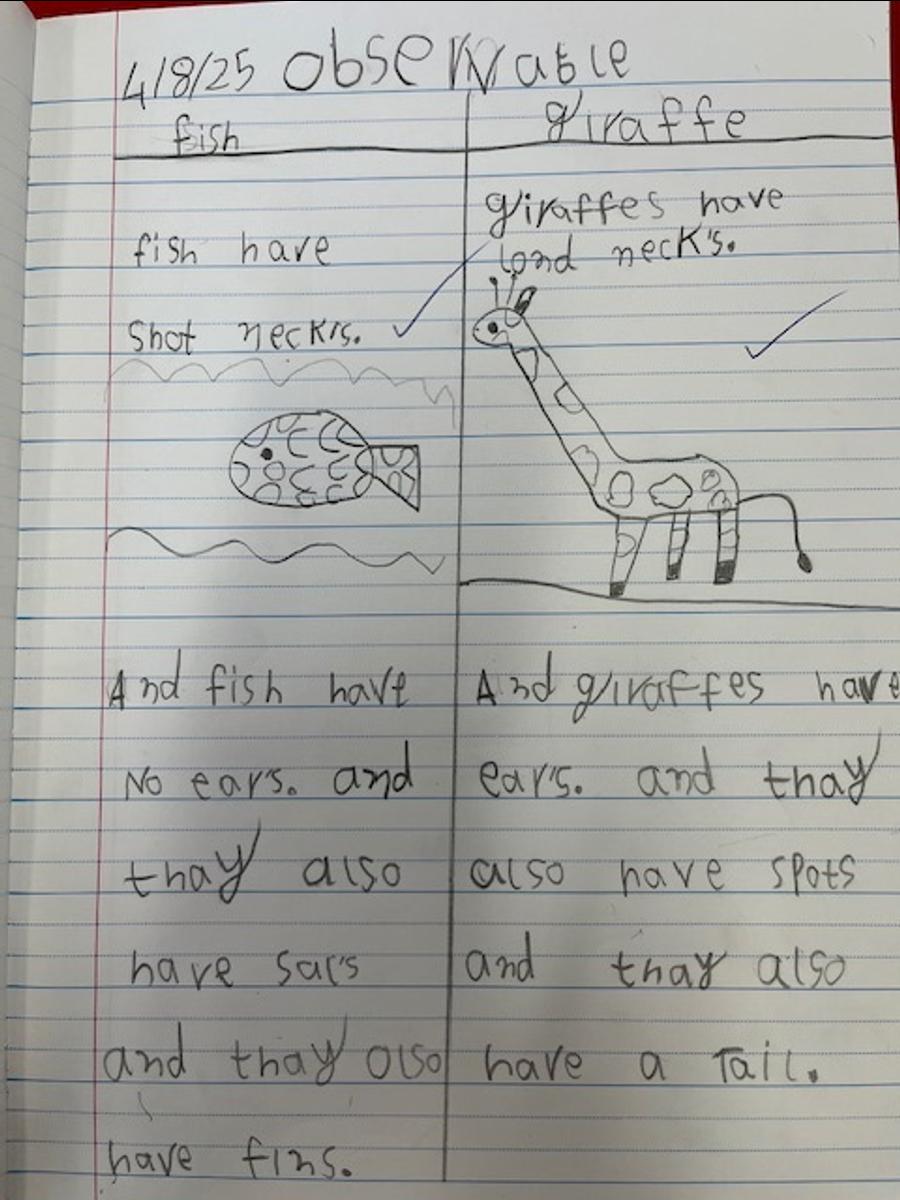 4/8/25 observable
fish
fish have
Shot neck's.
And fish have
No ear's. and
thay also
have sal's
and thay also
have fins.
giraffe
giraffes have
lond neck's.
And giraffes have
ear's. and thay
also have spots
and thay also
have a Tail.